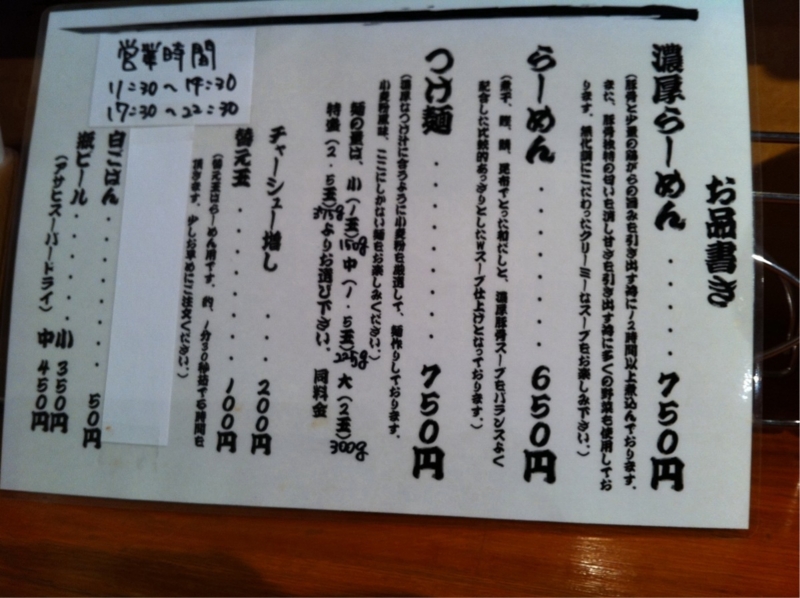 お品書き
濃厚らーめん・・・・・・750円
(豚骨と少量の鶏がらの旨みを引き出す為に12時間以上煮込んでおります。
また、豚骨独特の匂いを消し甘さを引き出す為に多くの野菜を使用してお
ります。乳化調にこだわったクリーミーなスープをお楽しみ下さい。)
らーめん・・・・・・・・650円
(煮干、鰹、鯖、昆布でとった和だしと、濃厚豚骨スープをバランスよく
配合した比較的あっさりとしたWスープ仕上げとなっております。)
つけ麺・・・・・・・・・750円
(濃厚なつけ汁に合うように小麦粉を厳選して、麺作りしております。
小麦粉風味、ここにしかない麺をお楽しみください。)
麺の量は、小(1玉)150g 中(1.5玉)225g 大(2玉)300g
特盛(2.5玉)375gよりお選び下さい。同料金
チャーシュー増し・・・・200円
替え玉・・・・・・・・・100円
(替え玉はらーめん用です。約、1分30秒茹でる時間を
頂きます。少しお早めにご注文ください。)
白ごはん・・・・・・・・50円
瓶ビール・・・・・・・小 350円
(アサヒスーパードライ) 中 450円
営業時間
11:30～14:30
17:30～22:30